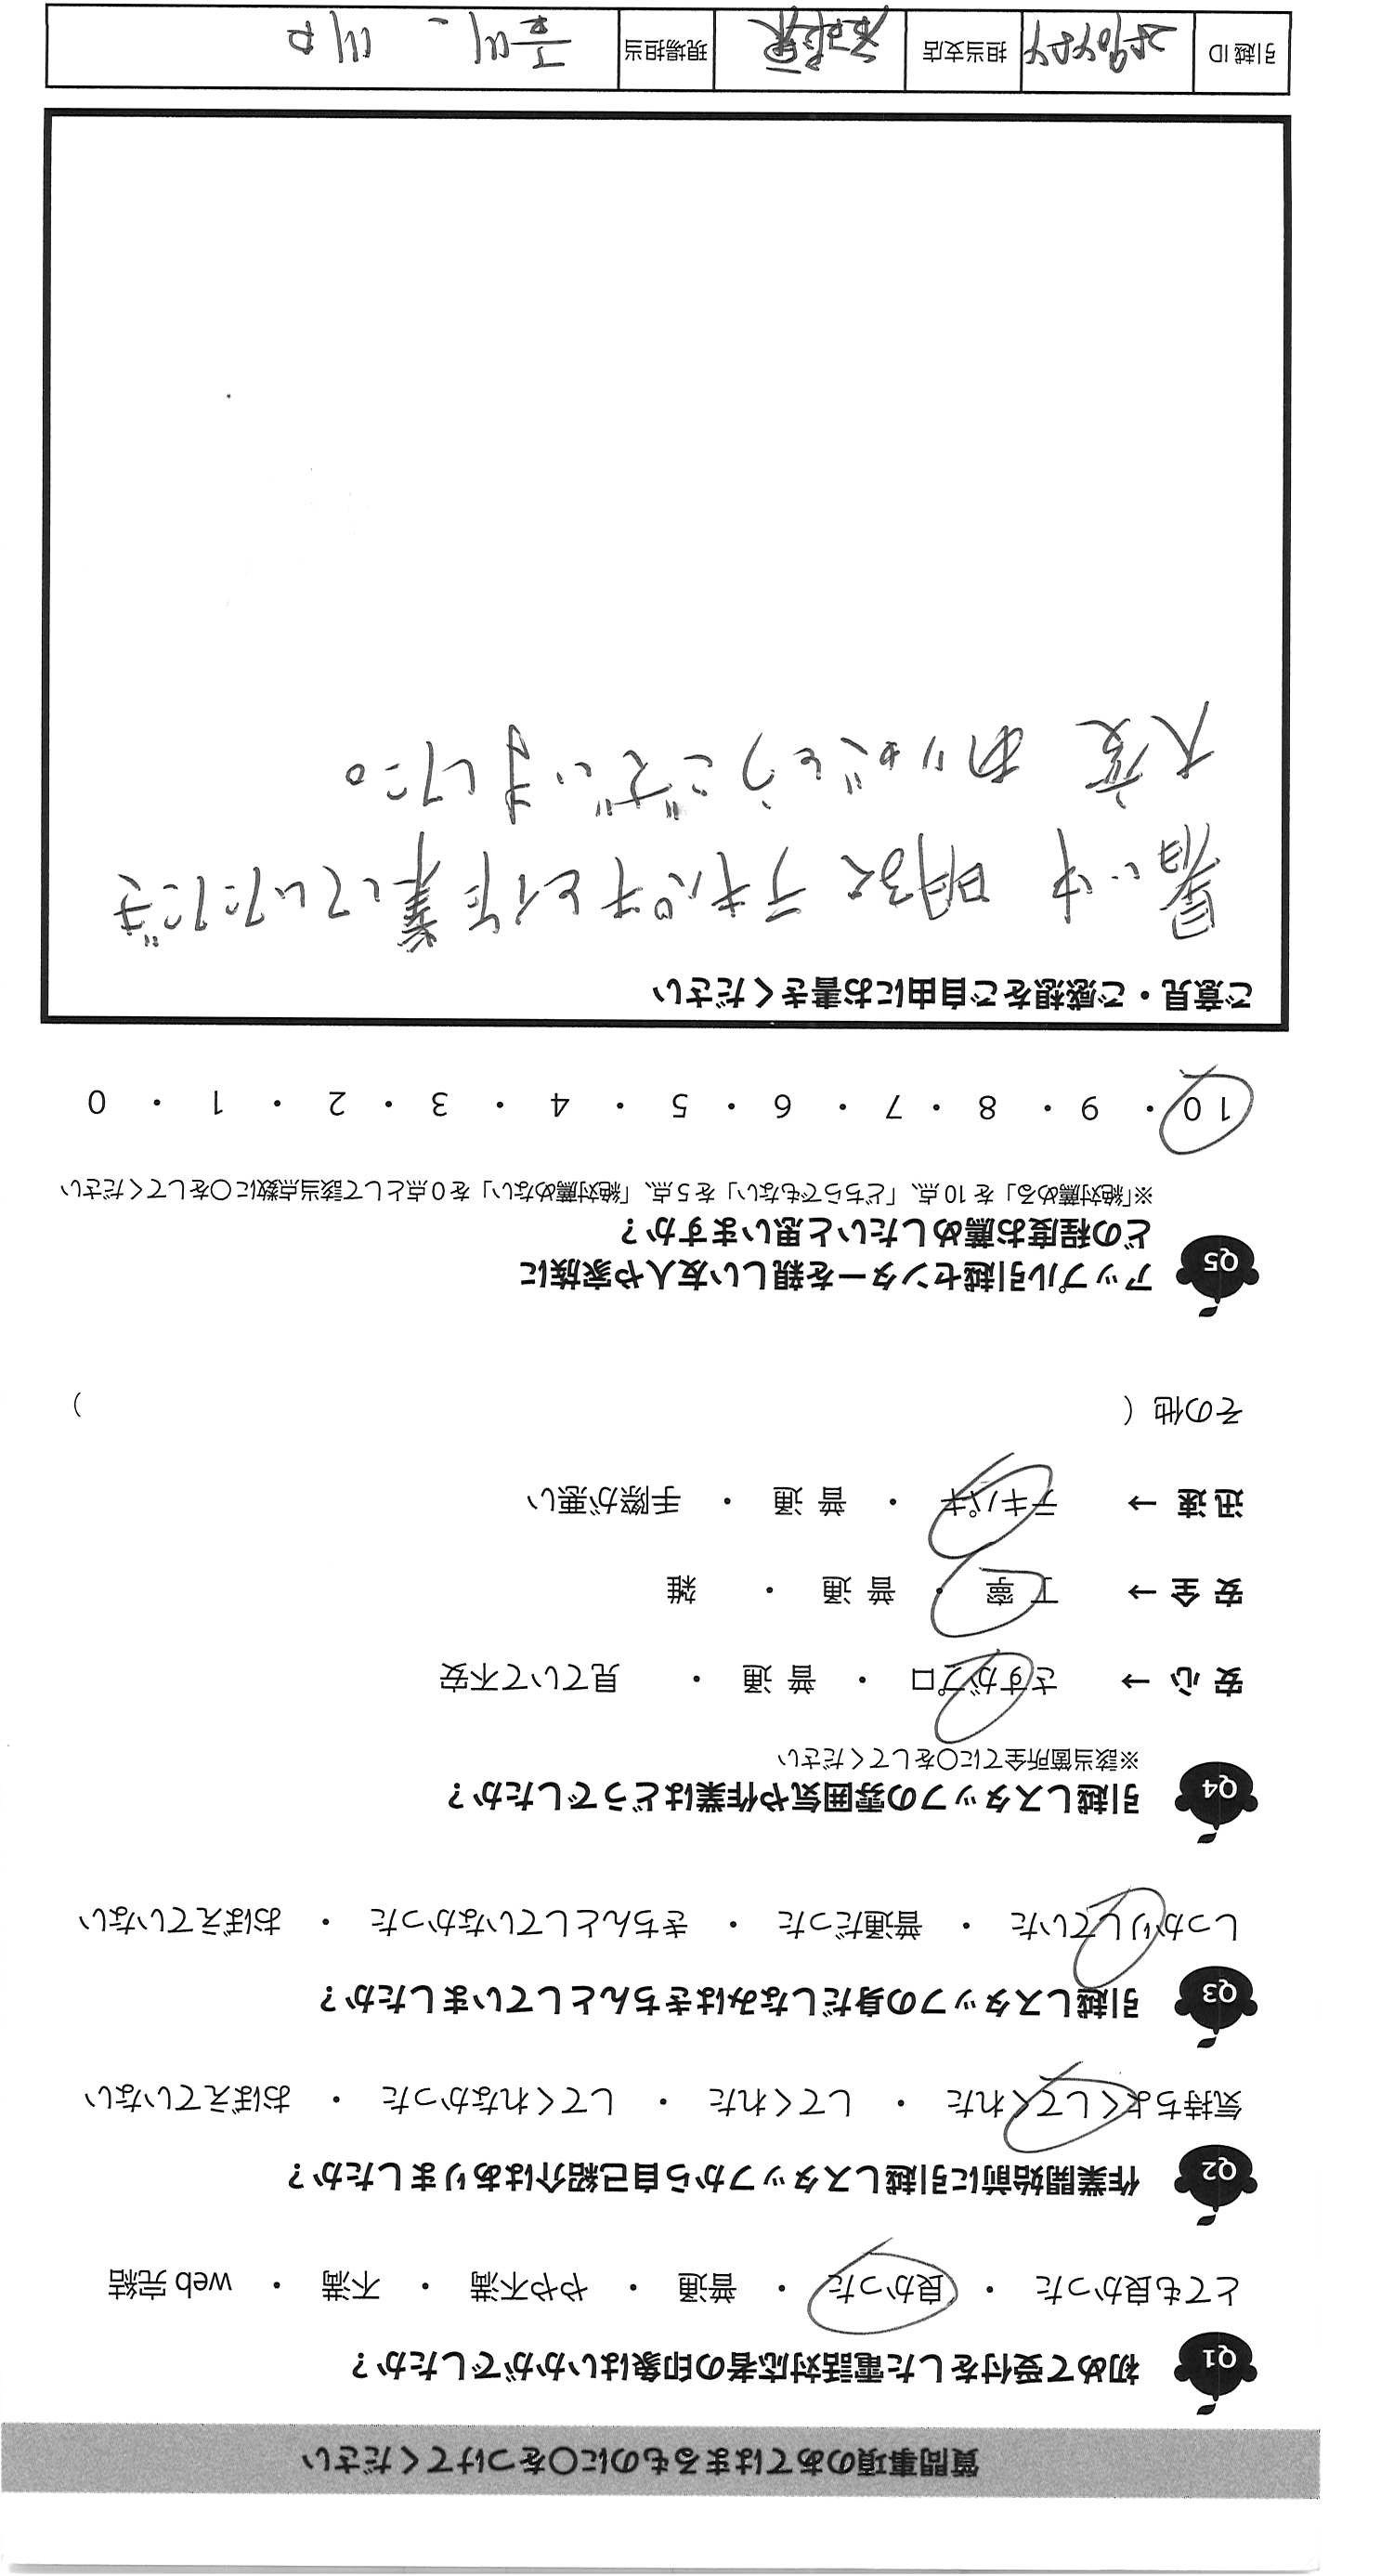 質問事項のあてはまるものに〇をつけてください
Q1 初めて受付をした電話対応者の印象はいかがでしたか?
とても良かった ・ 良かった ・ 普通 ・ やや不満 ・ 不満 ・ web 完結
Q2 作業開始前に引越しスタッフから自己紹介はありましたか?
気持ちよくしてくれた ・ してくれた ・ してくれなかった ・ おぼえていない
Q3 引越しスタッフの身だしなみはきちんとしていましたか?
しっかりしていた ・ 普通だった ・ きちんとしていなかった ・ おぼえていない
Q4 引越しスタッフの雰囲気や作業はどうでしたか?
※該当箇所全てに〇をしてください
安 心 → さすがプロ ・ 普 通 ・ 見ていて不安
安 全 → 丁 寧 ・ 普 通 ・ 雑
迅 速 → テキパキ ・ 普 通 ・ 手際が悪い
その他 ( )
Q5 アップル引越センターを親しい友人や家族に
どの程度お薦めしたいと思いますか?
※「絶対薦める」を 10 点、「どちらでもない」を 5 点、「絶対薦めない」を 0 点として該当点数に〇をしてください
10 ・ 9 ・ 8 ・ 7 ・ 6 ・ 5 ・ 4 ・ 3 ・ 2 ・ 1 ・ 0
ご意見・ご感想をご自由にお書きください
暑い中 明るく テキパキと作業していただき
大変 ありがとうございました。
引越 ID 担当支店 現場担当